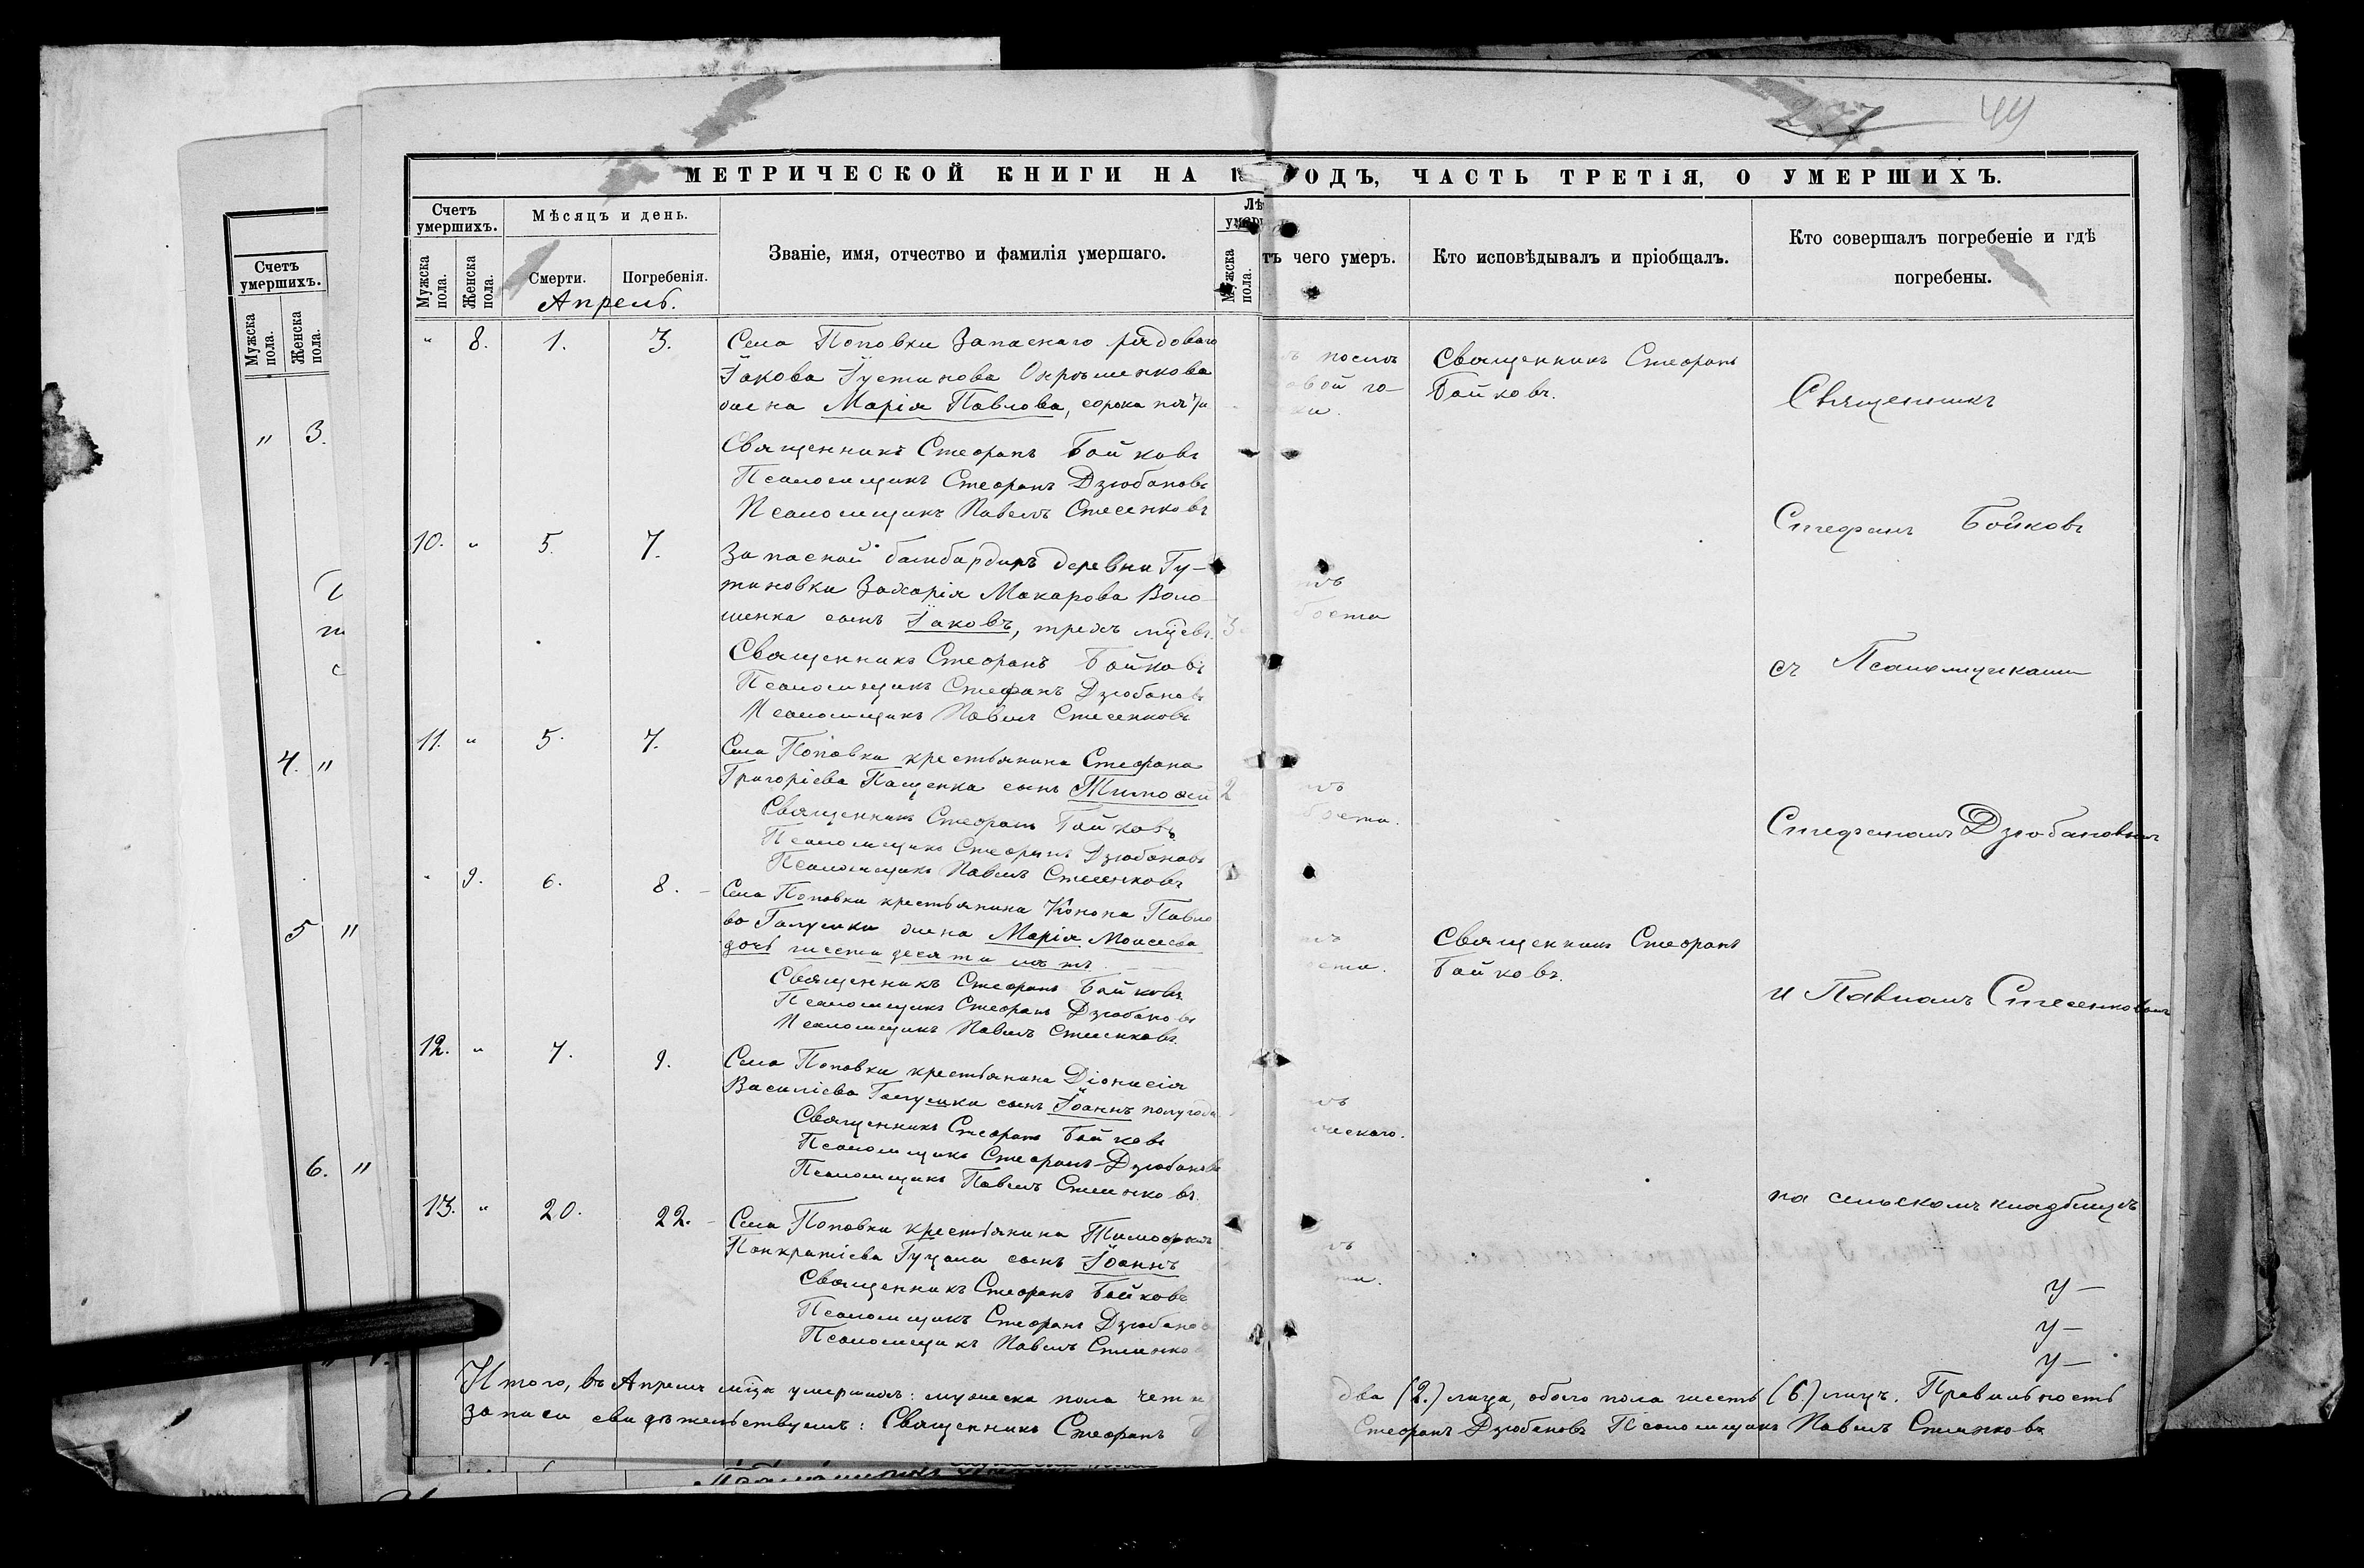 44
МЕТРИЧЕСКОЙ КНИГИ НА 1 ОДЪ, ЧАСТЬ ТРЕТІЯ, О УМЕРШИХЪ.
Счетъ умершихъ.
Мужска пола.
Женска пола.
Мѣсяцъ и день.
Смерти.
Погребенія.
Званіе, имя, отчество и фамилія умершаго.
Мужска пола.
чего умеръ.
Кто исповѣдывалъ и пріобщалъ.
Кто совершалъ погребеніе и гдѣ
погребены.
Апрель.
" 8. 1. 3. Села Поповки Запаснаго рядоваго
Іакова Іустинова
жена Марія Павлова, сорока
Священникъ Стефанъ Бойковъ
Псаломщикъ Стефанъ Дзюбановъ
Псаломщикъ Павелъ Стесенковъ
послѣ
Священникъ Стефанъ
Бойковъ.
10. " 5. 7. Запасной бомбардиръ деревни Гу-
тиновки Захарія Макарова Воло
шенка сынъ Іаковъ, трехъ
Священникъ Стефанъ Бойковъ
Псаломщикъ Стефанъ Дзюбановъ
Псаломщикъ Павелъ Стесенковъ
3
11. " 5. 7. Села Поповки крестьянина Стефана
Григоріева Пащенка сынъ Тимофей 2
Священникъ Стефанъ Бойковъ
Псаломщикъ Стефанъ Дзюбановъ
Псаломщикъ Павелъ Стесенковъ
" 9. 6. 8. Села Поповки крестьянина Конона Павло
ва Галушки жена Марія Моисеева
дочь шестидесяти лѣтъ
Священникъ Стефанъ Бойковъ
Псаломщикъ Стефанъ Дзюбановъ
Псаломщикъ Павелъ Стесенковъ
Священникъ Стефанъ
Бойковъ.
12. " 7. 9. Села Поповки крестьянина Діонисія
Василіева Галушки сынъ Іоаннъ полугода
Священникъ Стефанъ Бойковъ
Псаломщикъ Стефанъ Дзюбановъ
Псаломщикъ Павелъ Стесенковъ
13. " 20. 22. Села Поповки крестьянина Тимофея
Панкратіева Гуцала сынъ Іоаннъ
Священникъ Стефанъ Бойковъ
Псаломщикъ Стефанъ Дзюбано
Псаломщикъ Павелъ Стесенко
Священникъ
Стефанъ Бойковъ
съ Псаломщиками
Стефаномъ Дзюбановымъ
и Павломъ Стесенковымъ
на сельскомъ кладбищѣ
Итого, въ Апрелѣ м҃цѣ умершихъ: мужеска пола четы два (2.) лица, обоего пола шесть (6.) лицъ. Правильность
записи свидѣтельствуемъ: Священникъ Стефанъ Стефанъ Дзюбановъ Псаломщикъ Павелъ Стесенковъ
Счетъ умершихъ.
Мужска пола.
Женска пола.
" 3.
4. "
5 "
6. "